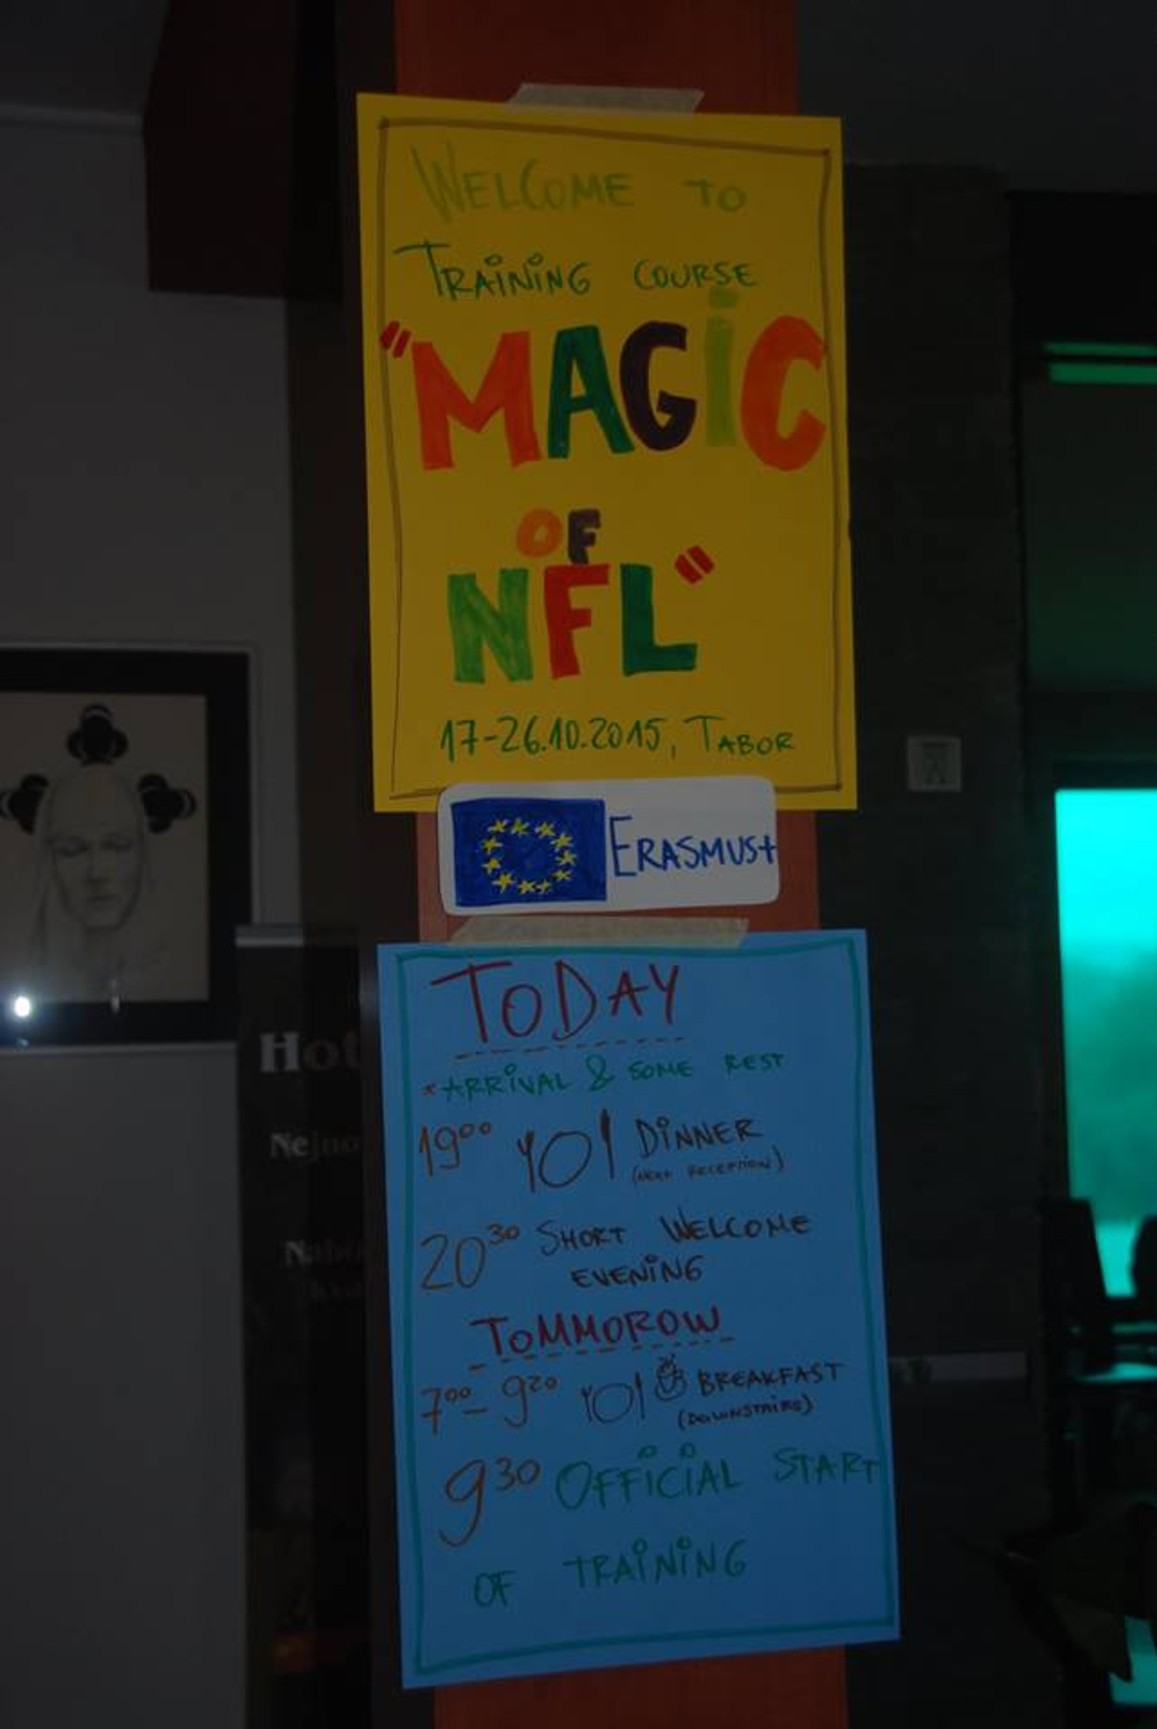 WELCOME TO
TRAINING COURSE
"MAGIC
OF
NFL"
17-26.10.2015, TABOR
ERASMUS+
TODAY
*ARRIVAL & SOME REST
19⁰⁰ DINNER
(NEXT RECEPTION)
20³⁰ SHORT WELCOME
EVENING
TOMMOROW
7⁰⁰- 9²⁰ BREAKFAST
(DOWNSTAIRS)
9³⁰ OFFICIAL START
OF TRAINING
Hot